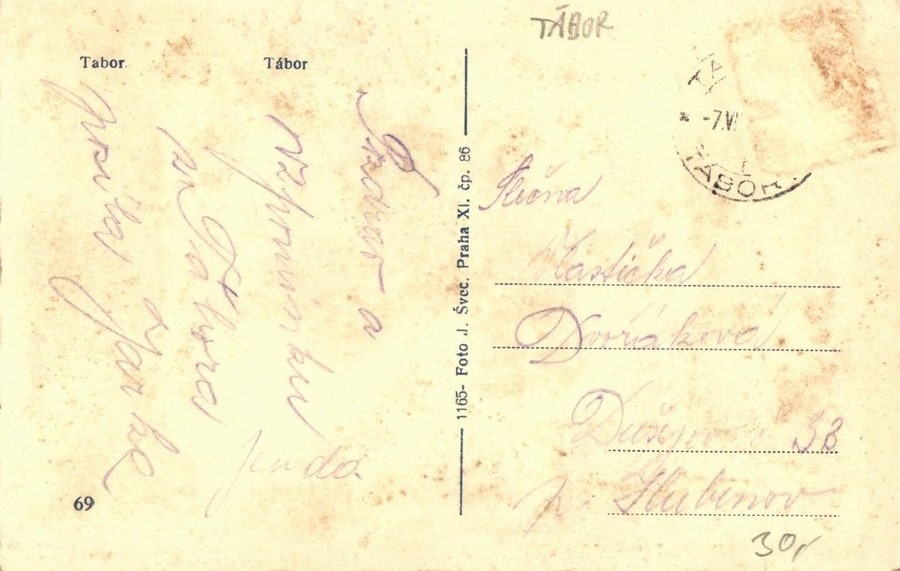 TÁBOR
Tabor.
Tábor
TÁBOR
-7.VI
Pozdrav a
vzpomínku
z Tábora
posílá Jarka
Jenda
1165- Foto J. Švec. Praha XI. čp. 86
Slečna
Vlastička
Dvořáková
Dušejov č. 33
p. Hubenov
69
30,-